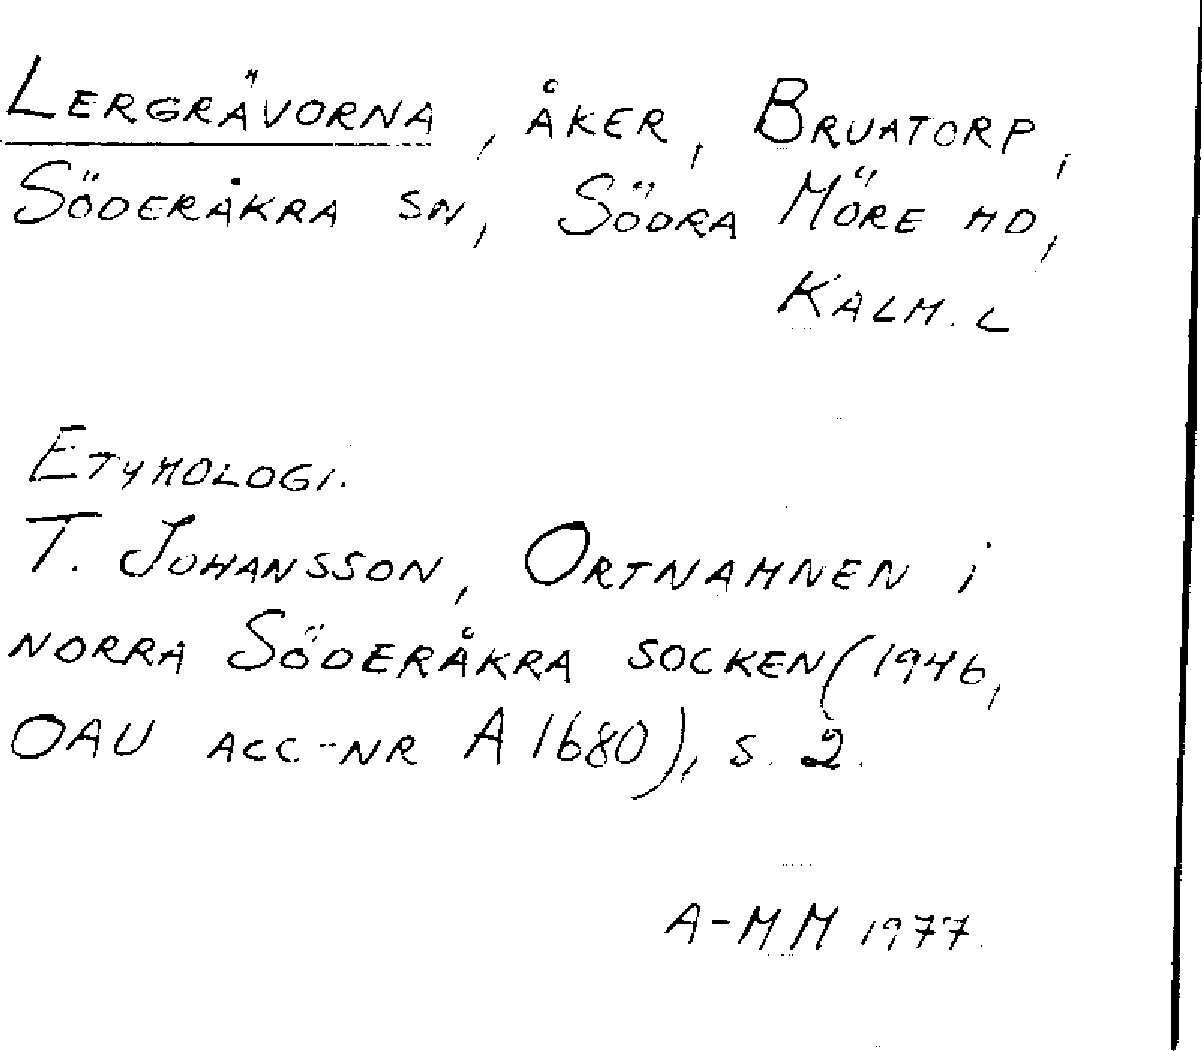 LERGRÄVORNA, ÅKER, BRUATORP,
SÖDERÅKRA SN, SÖDRA MÖRE HD,
KALM. L
ETYMOLOGI.
T. JOHANSSON, ORTNAMNEN i
NORRA SÖDERÅKRA SOCKEN (1946,
OAU ACC.-NR A 1680), S. 2.
A-MM 1977.